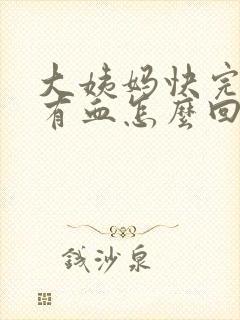 大姨妈快完
有血怎麼回
钱沙泉